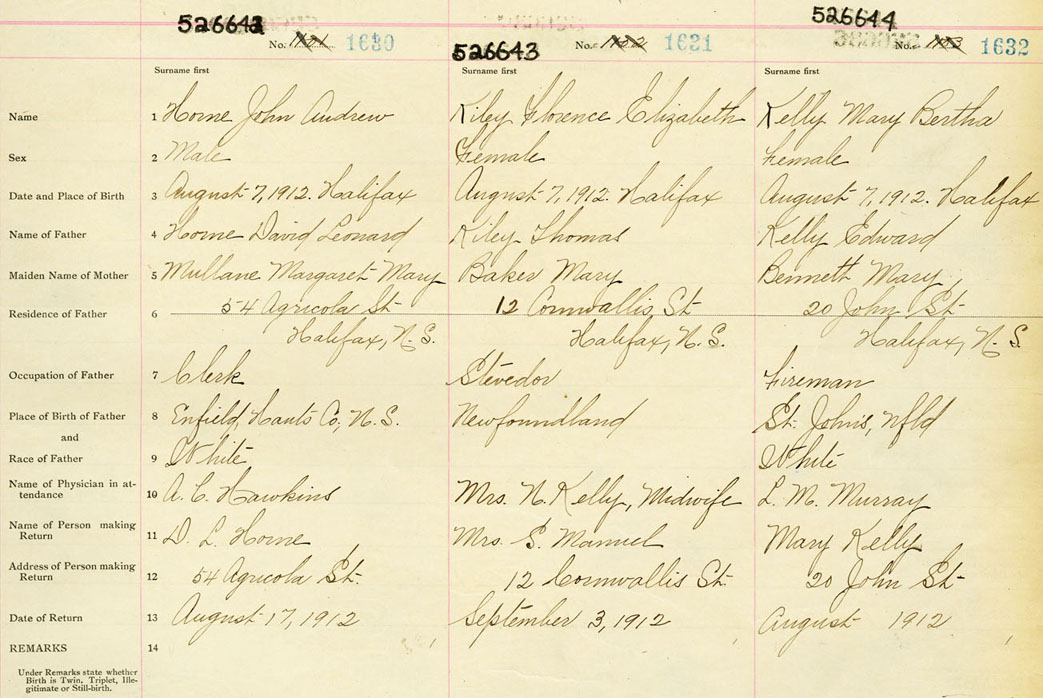 526642 526643 526644
No. 1630 No. 1631 No. 1632
Surname first Surname first Surname first
Name 1 Horne John Andrew Kiley Florence Elizabeth Kelly Mary Bertha
Sex 2 Male Female Female
Date and Place of Birth 3 August 7, 1912. Halifax August 7, 1912. Halifax August 7, 1912. Halifax
Name of Father 4 Horne David Leonard Kiley Thomas Kelly Edward
Maiden Name of Mother 5 Mullane Margaret Mary Baker Mary Bennett Mary
54 Agricola St 12 Cornwallis St 20 John St
Residence of Father 6
Halifax, N. S. Halifax, N. S. Halifax, N. S.
Occupation of Father 7 Clerk Stevedor Fireman
Place of Birth of Father 8 Enfield, Hants Co, N. S. Newfoundland St. John's, nfld
and
Race of Father 9 White White
Name of Physician in at-
tendance 10 A. C. Hawkins Mrs. N. Kelly, Midwife L. M. Murray
Name of Person making
Return 11 D. L. Horne Mrs. S. Manuel Mary Kelly
Address of Person making
Return 12 54 Agricola St. 12 Cornwallis St. 20 John St
Date of Return 13 August 17, 1912 September 3, 1912 August 1912
REMARKS 14
Under Remarks state whether
Birth is Twin, Triplet, Ille-
gitimate or Still-birth.